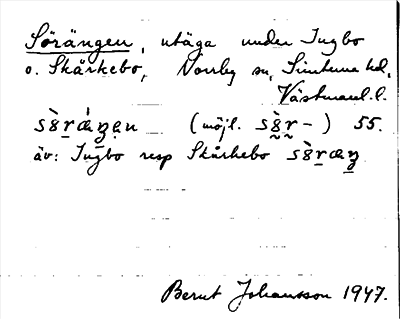 Sörängen, utäga under Ingbo
o. Skårkebo, Norrby sn, Simtuna hd,
Västmanl. l.
sȣ̀ṟǽŋe̱n (möjl. sȣ̰̀r̰-) 55.
äv: Ingbo resp Skårkebo sȣ̀ṟæŋ
Bernt Johansson 1947.